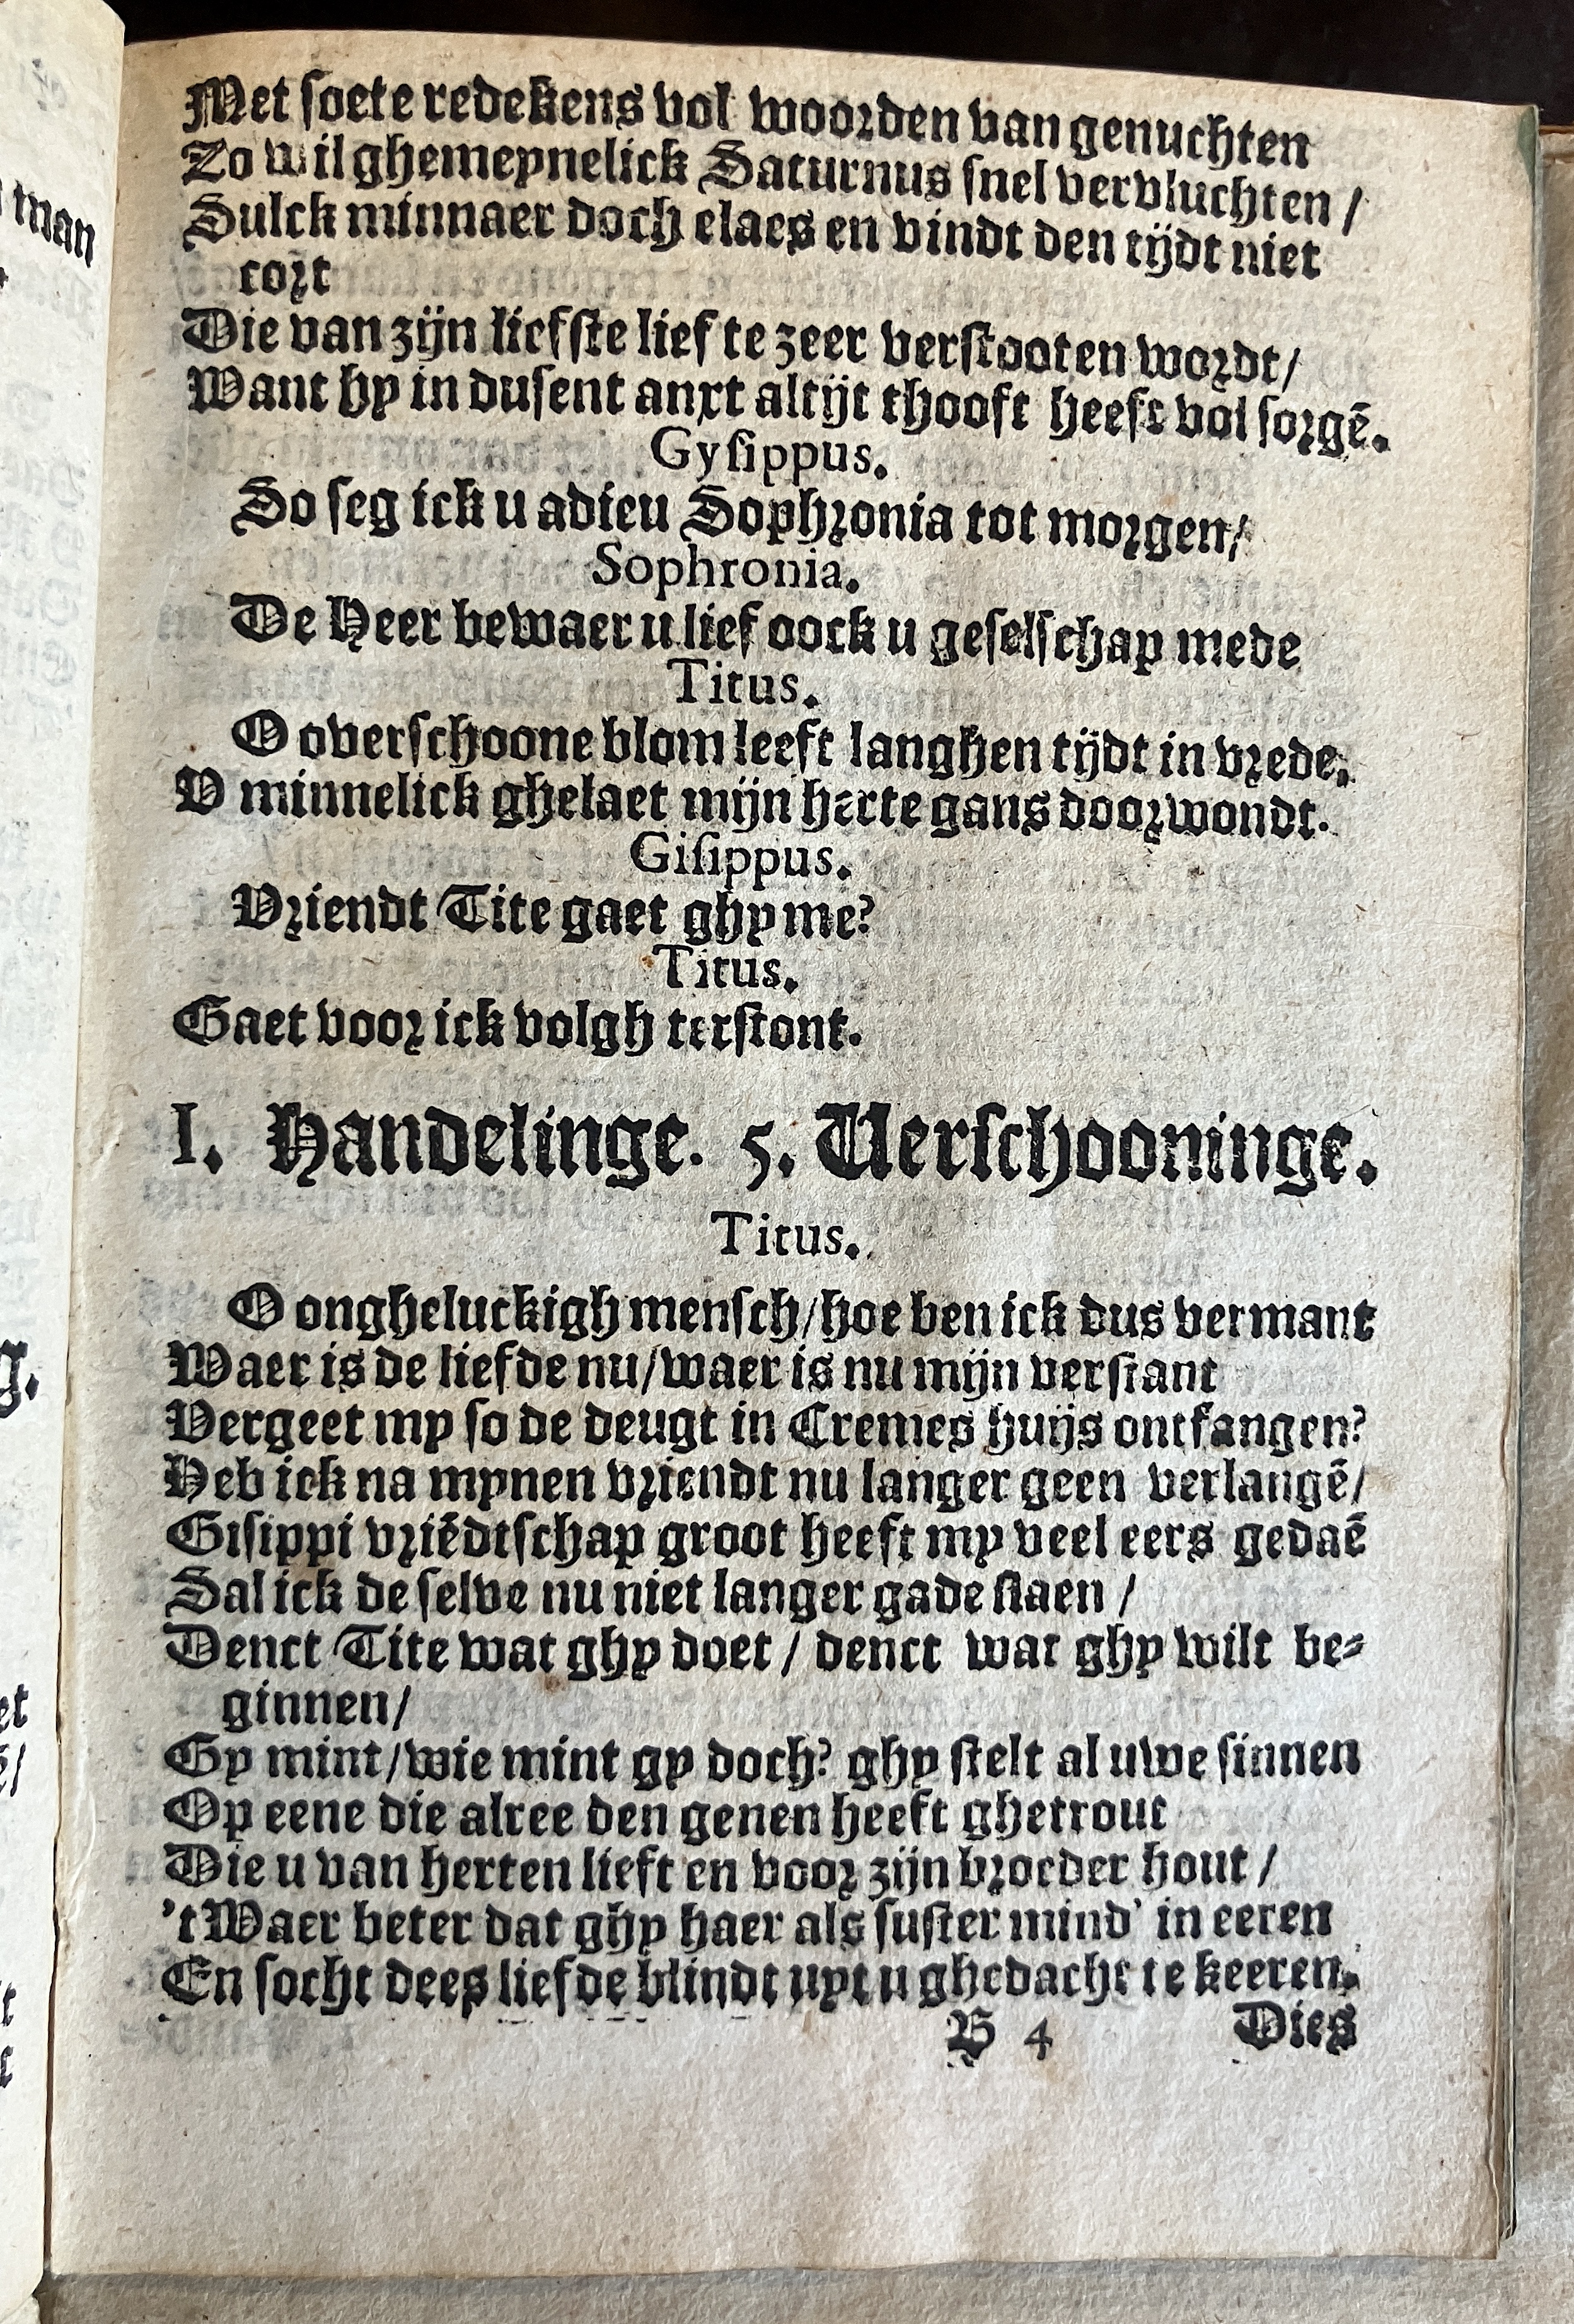 Met soete redekens vol woorden van genuchten
Zo wil ghemeynelick Saturnus snel vervluchten /
Sulck minnaer doch elaes en vindt den tijdt niet
cort
Die van zijn liefste lief te zeer verstooten wordt /
Want hy in dusent anxt altijt thooft heeft vol sorgē.
Gysippus.
So seg ick u adieu Sophronia tot morgen /
Sophronia.
De Heer bewaer u lief oock u geselschap mede
Titus.
O overschoone blom leeft langhen tijdt in vrede,
V minnelick ghelaet mijn herte gans doorwondt.
Gisippus.
Vriendt Tite gaet ghy me?
Titus.
Gaet voor ick volgh terstont.
I. Handelinge. 5. Verschooninge.
Titus.
O ongheluckigh mensch / hoe ben ick dus vermant
Waer is de liefde nu / waer is nu mijn verstant
Vergeet my so de deugt in Cremes huijs ontfangen?
Heb ick na mynen vriendt nu langer geen verlangē /
Gisippi vriēdtschap groot heeft my veel eers gedaē
Sal ick de selve nu niet langer gade slaen /
Denct Tite wat ghy doet / denct wat ghy wilt be⸗
ginnen /
Gy mint / wie mint gy doch? ghy stelt al uwe sinnen
Op eene die alree den genen heeft ghetrout
Die u van herten lieft en voor zijn broeder hout /
't Waer beter dat ghy haer als suster mind' in eeren
En socht dees liefde blindt uyt u ghedacht te keeren.
B 4 Dies